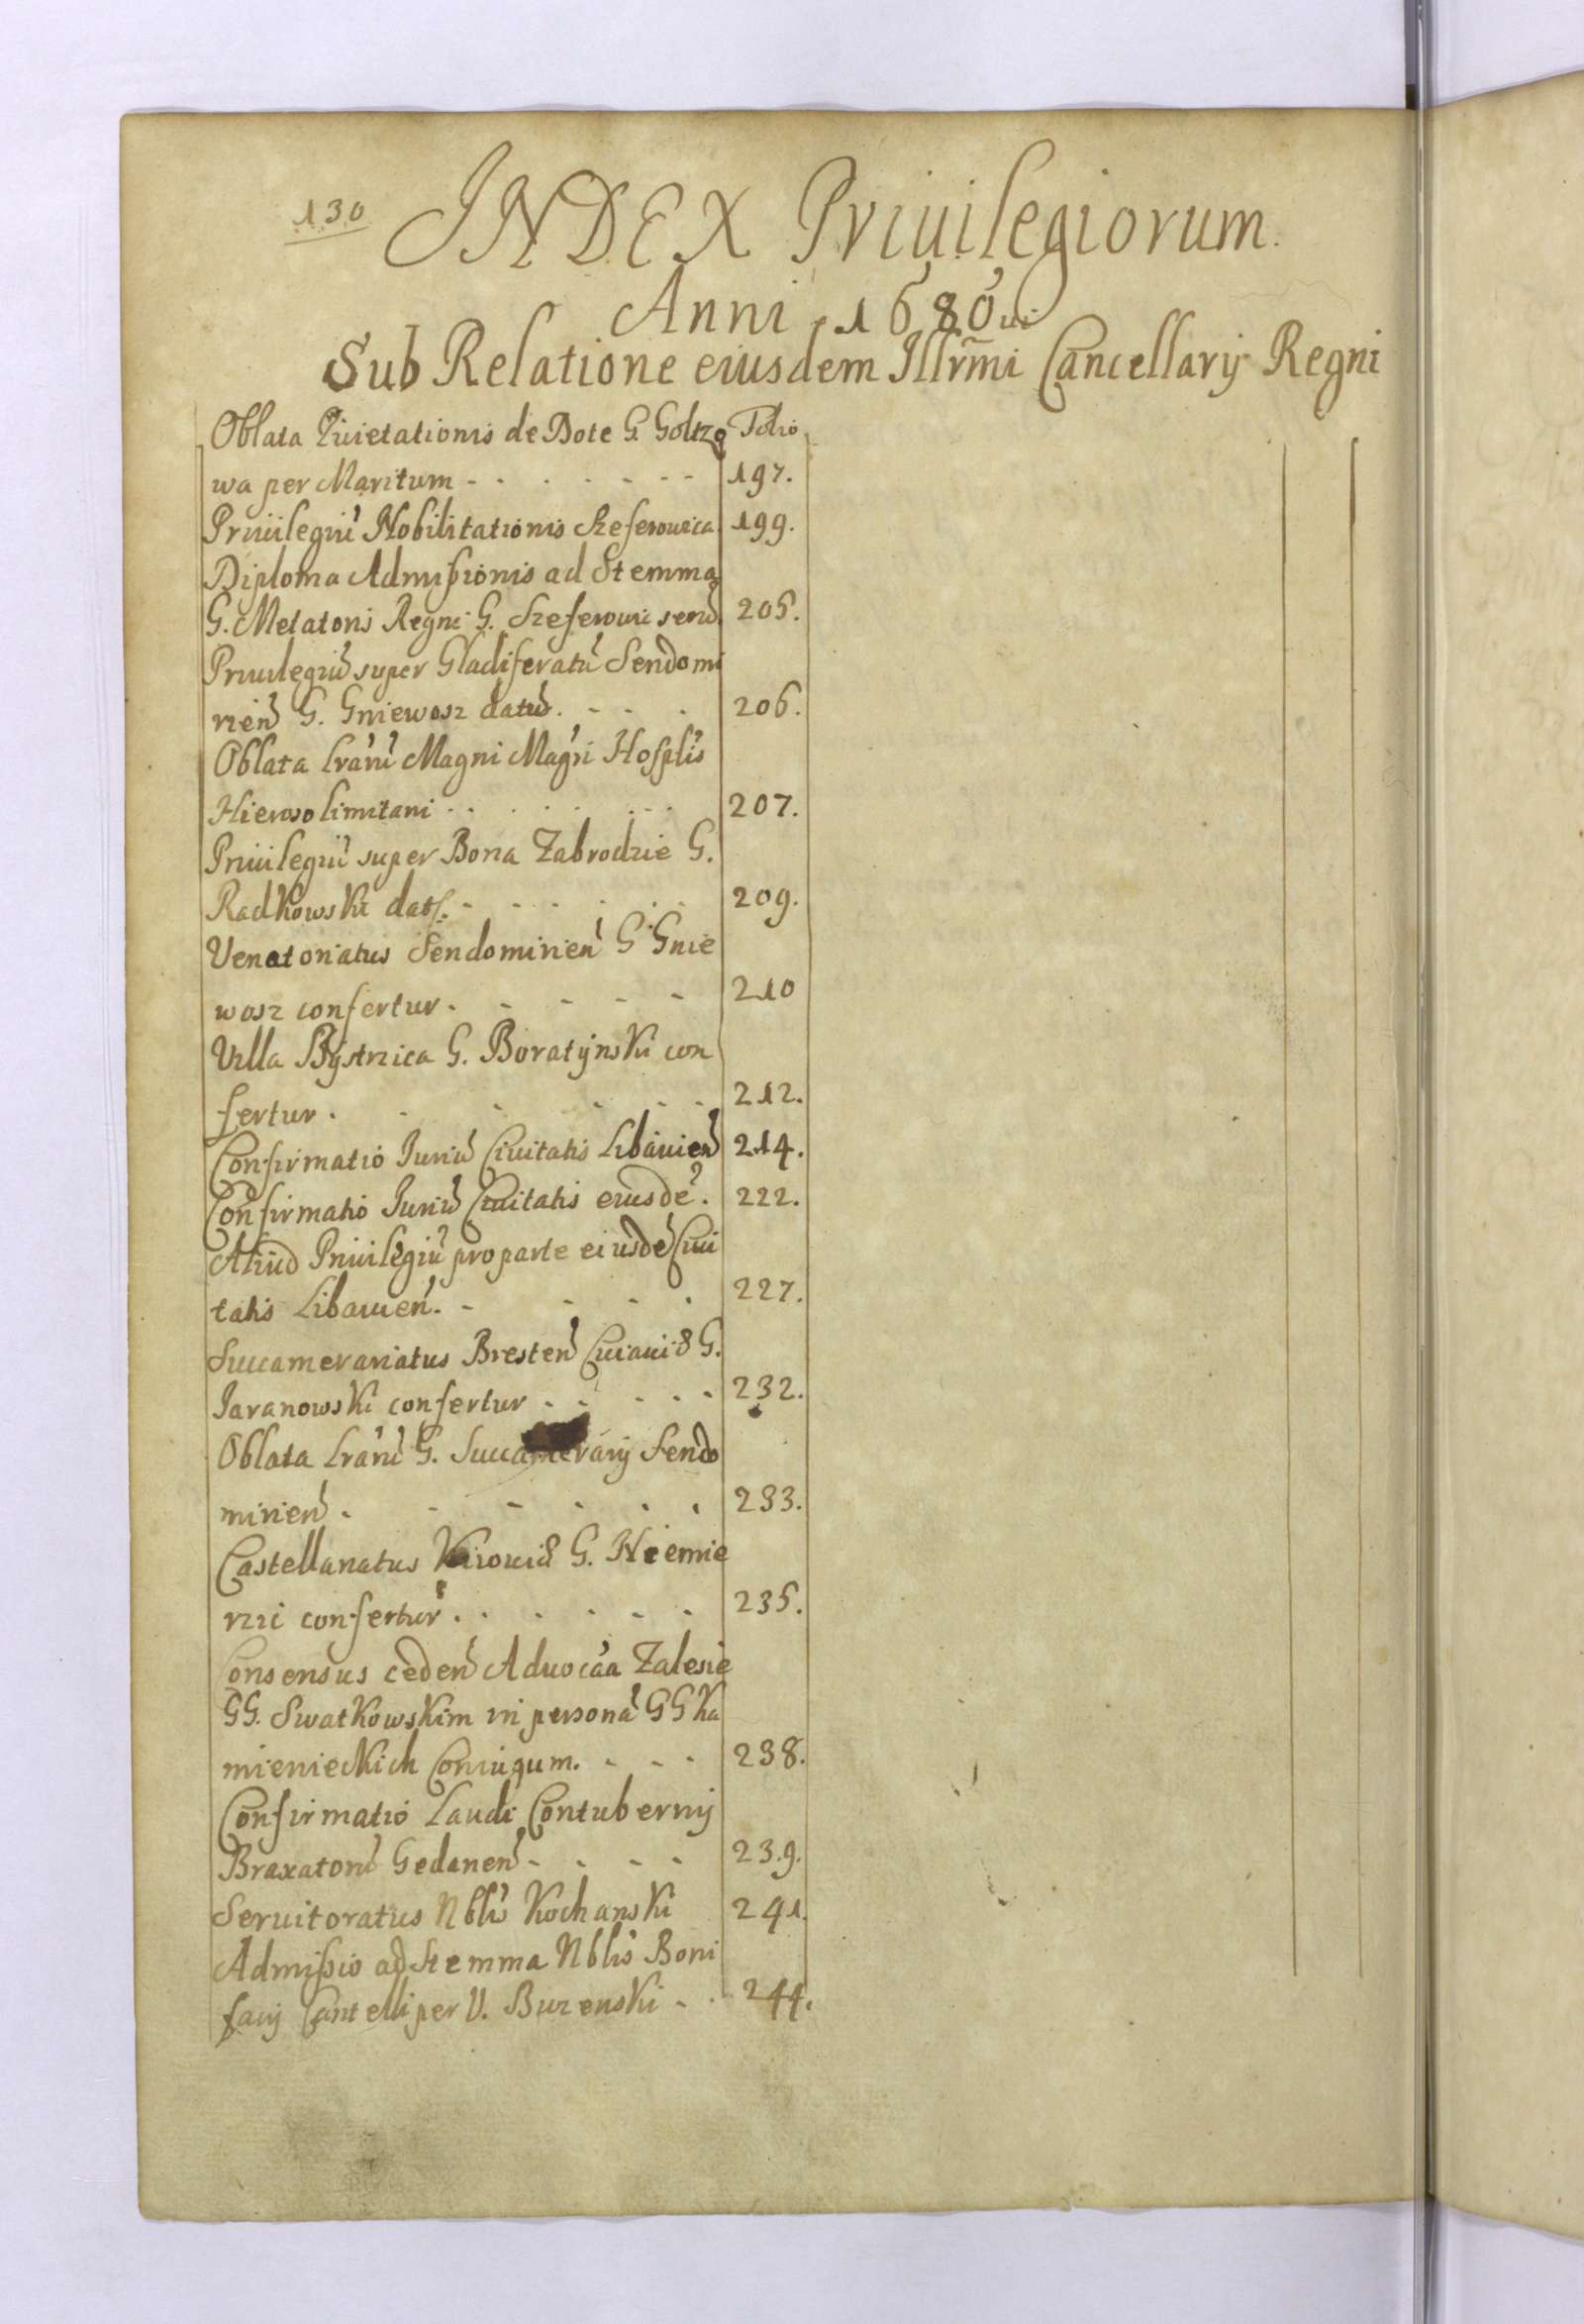 130
INDEX Priuilegiorum.
Anni 1680
Sub Relatione eiusdem Illrm̃i Cancellarij Regni
Oblata Quietationis de Dote G. Goltzo Folio
wa per Maritum - - - - - - - 197.
Priuilegiũ Nobilitationis Szeferowica 199.
Diploma Admissionis ad Stemma
G. Metatoris Regni G. Szeferowi 205.
Priuilegiũ super Gladiferatũ Sendomi
rieñ G. Gniewosz datũ. - - - 206.
Oblata Lrarũ Magni Magri Hosplis
Hierosolimitani - - - - - - 207.
Priuilegiũ super Bona Zabrodzie G.
Radkowski dat. - - - - - 209.
Venatoriatus Sendomirieñ G Gnie
wosz confertur. - - - - 210
Villa Bystrzica G. Boratynski con
fertur. - - - - - 212.
Confirmatio Juriũ Ciuitatis Libauieñ 214.
Confirmatio Juriũ Ciuitatis eiusdẽ. 222.
Aliud Priuilegiũ pro parte eiusdẽ Ciui
tatis Libauieñ. - - - - 227.
Succamerariatus Bresteñ Cuiauiӕ G.
Jaranowski confertur - - - - - 232.
Oblata Lrarũ G. Succamerarij Sendo
mirieñ. - - - - - - 233.
Castellanatus Kiiouiӕ G. Niemie
rzic confertur. - - - - - 235.
Consensus cedeñ Aduocãa Zalesie
GG. Swatkowskim in personã GG Ka
mienieckich Coniugum. - - - 238.
Confirmatio Laudi Contubernij
Braxatorũ Gedaneñ - - - - 239.
Seruitoratus Nblis Kochanski 241.
Admissio ad Stemma Nblis Boni
facij Cantelli per V. Buzenski - - 244.